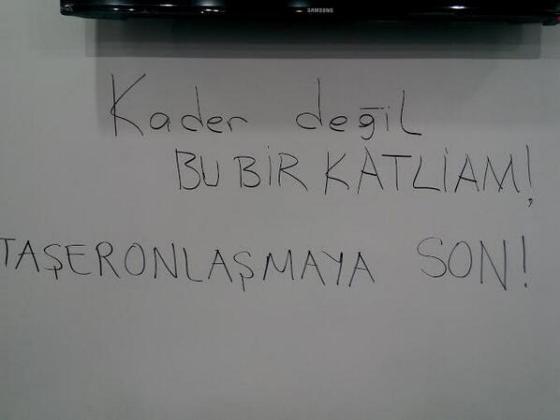 SAMSUNG
Kader değil
BU BİR KATLİAM!
TAŞERONLAŞMAYA SON!